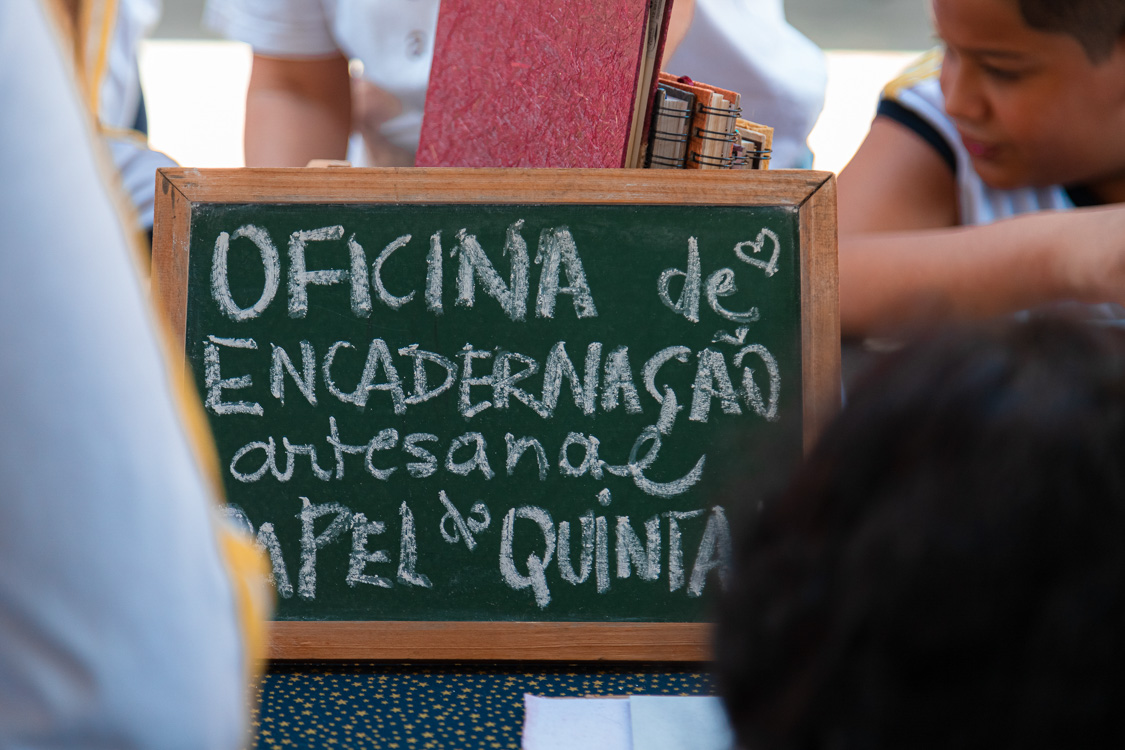 OFICINA de
ENCADERNAÇÃO
artesanal
PAPEL do QUINTA